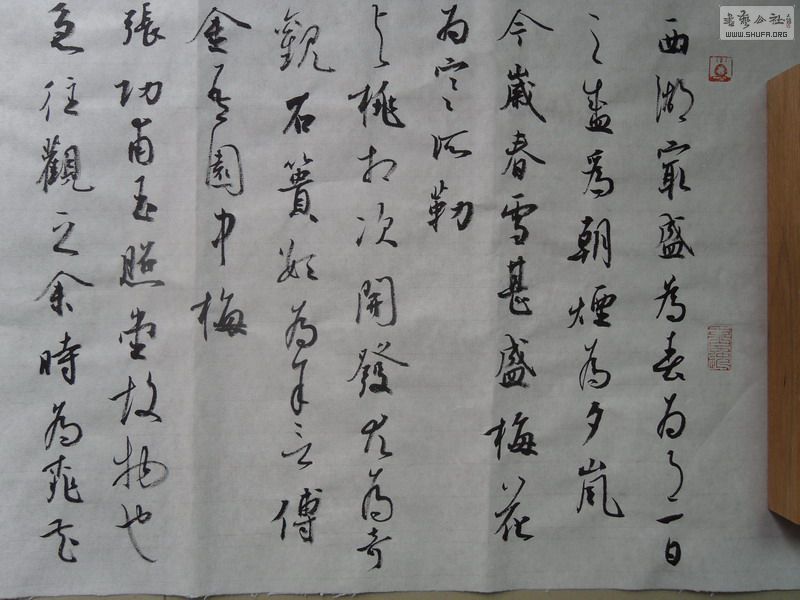 西湖最盛為春為月一日
之盛為朝煙為夕嵐
今歲春雪甚盛梅花
為寒所勒
与桃相次開發尤為奇
觀石簣數為余言傅
金吾園中梅
張功甫玉照堂故物也
急往觀之余時為桃花
書藝公社
WWW.SHUFA.ORG